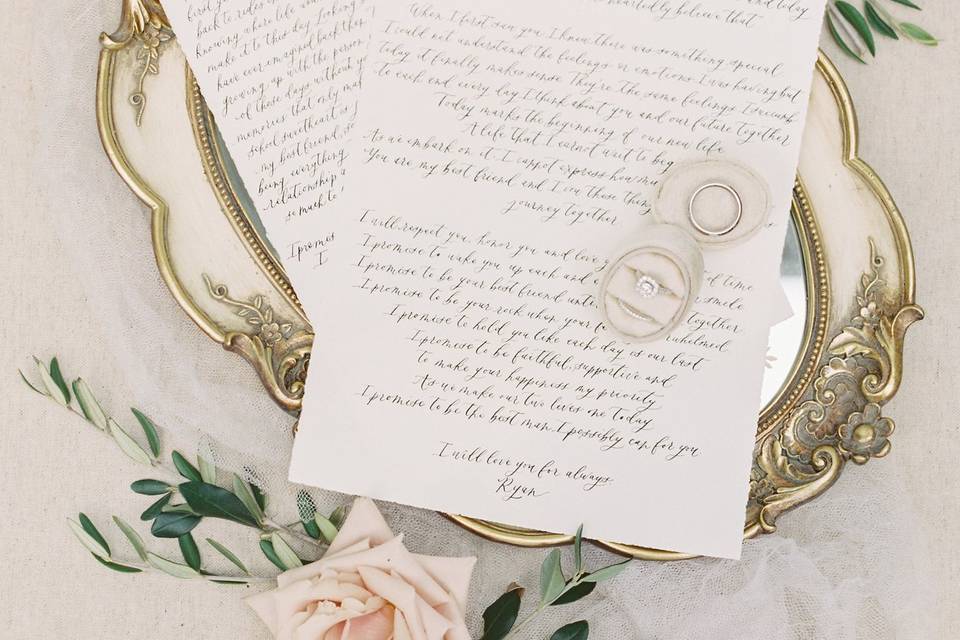 back to rides
knowing where life
make it to this day. Looking
have ever imagined back then
growing up with the person
of those days without y
memories that only ma
school sweetheart is
my best friend, s
being everything
relationship a
so much to
I promis
I
heartedly believe that
and today
When I first seen you, I knew there was something special
I could not understand the feelings or emotions I was having but
Today it finally makes sense. They're the same feelings I succumb
to each and every day I think about you and our future together
Today marks the beginning of our new life
A life that I cannot wait to beg
As we embark on it, I cannot express how mu
You are my best friend and I can these thing
journey together
I will respect you, honor you and love yo of time
I promise to wake you up each and e r smile
I promise to be your best friend unti together
I promise to be your rock when your fa rwhelmed
I promise to hold you like each day is our last
I promise to be faithful, supportive and
to make your happiness my priority
As we make our two lives one today
I promise to be the best man I possibly can for you
I will love you for always
Ryan